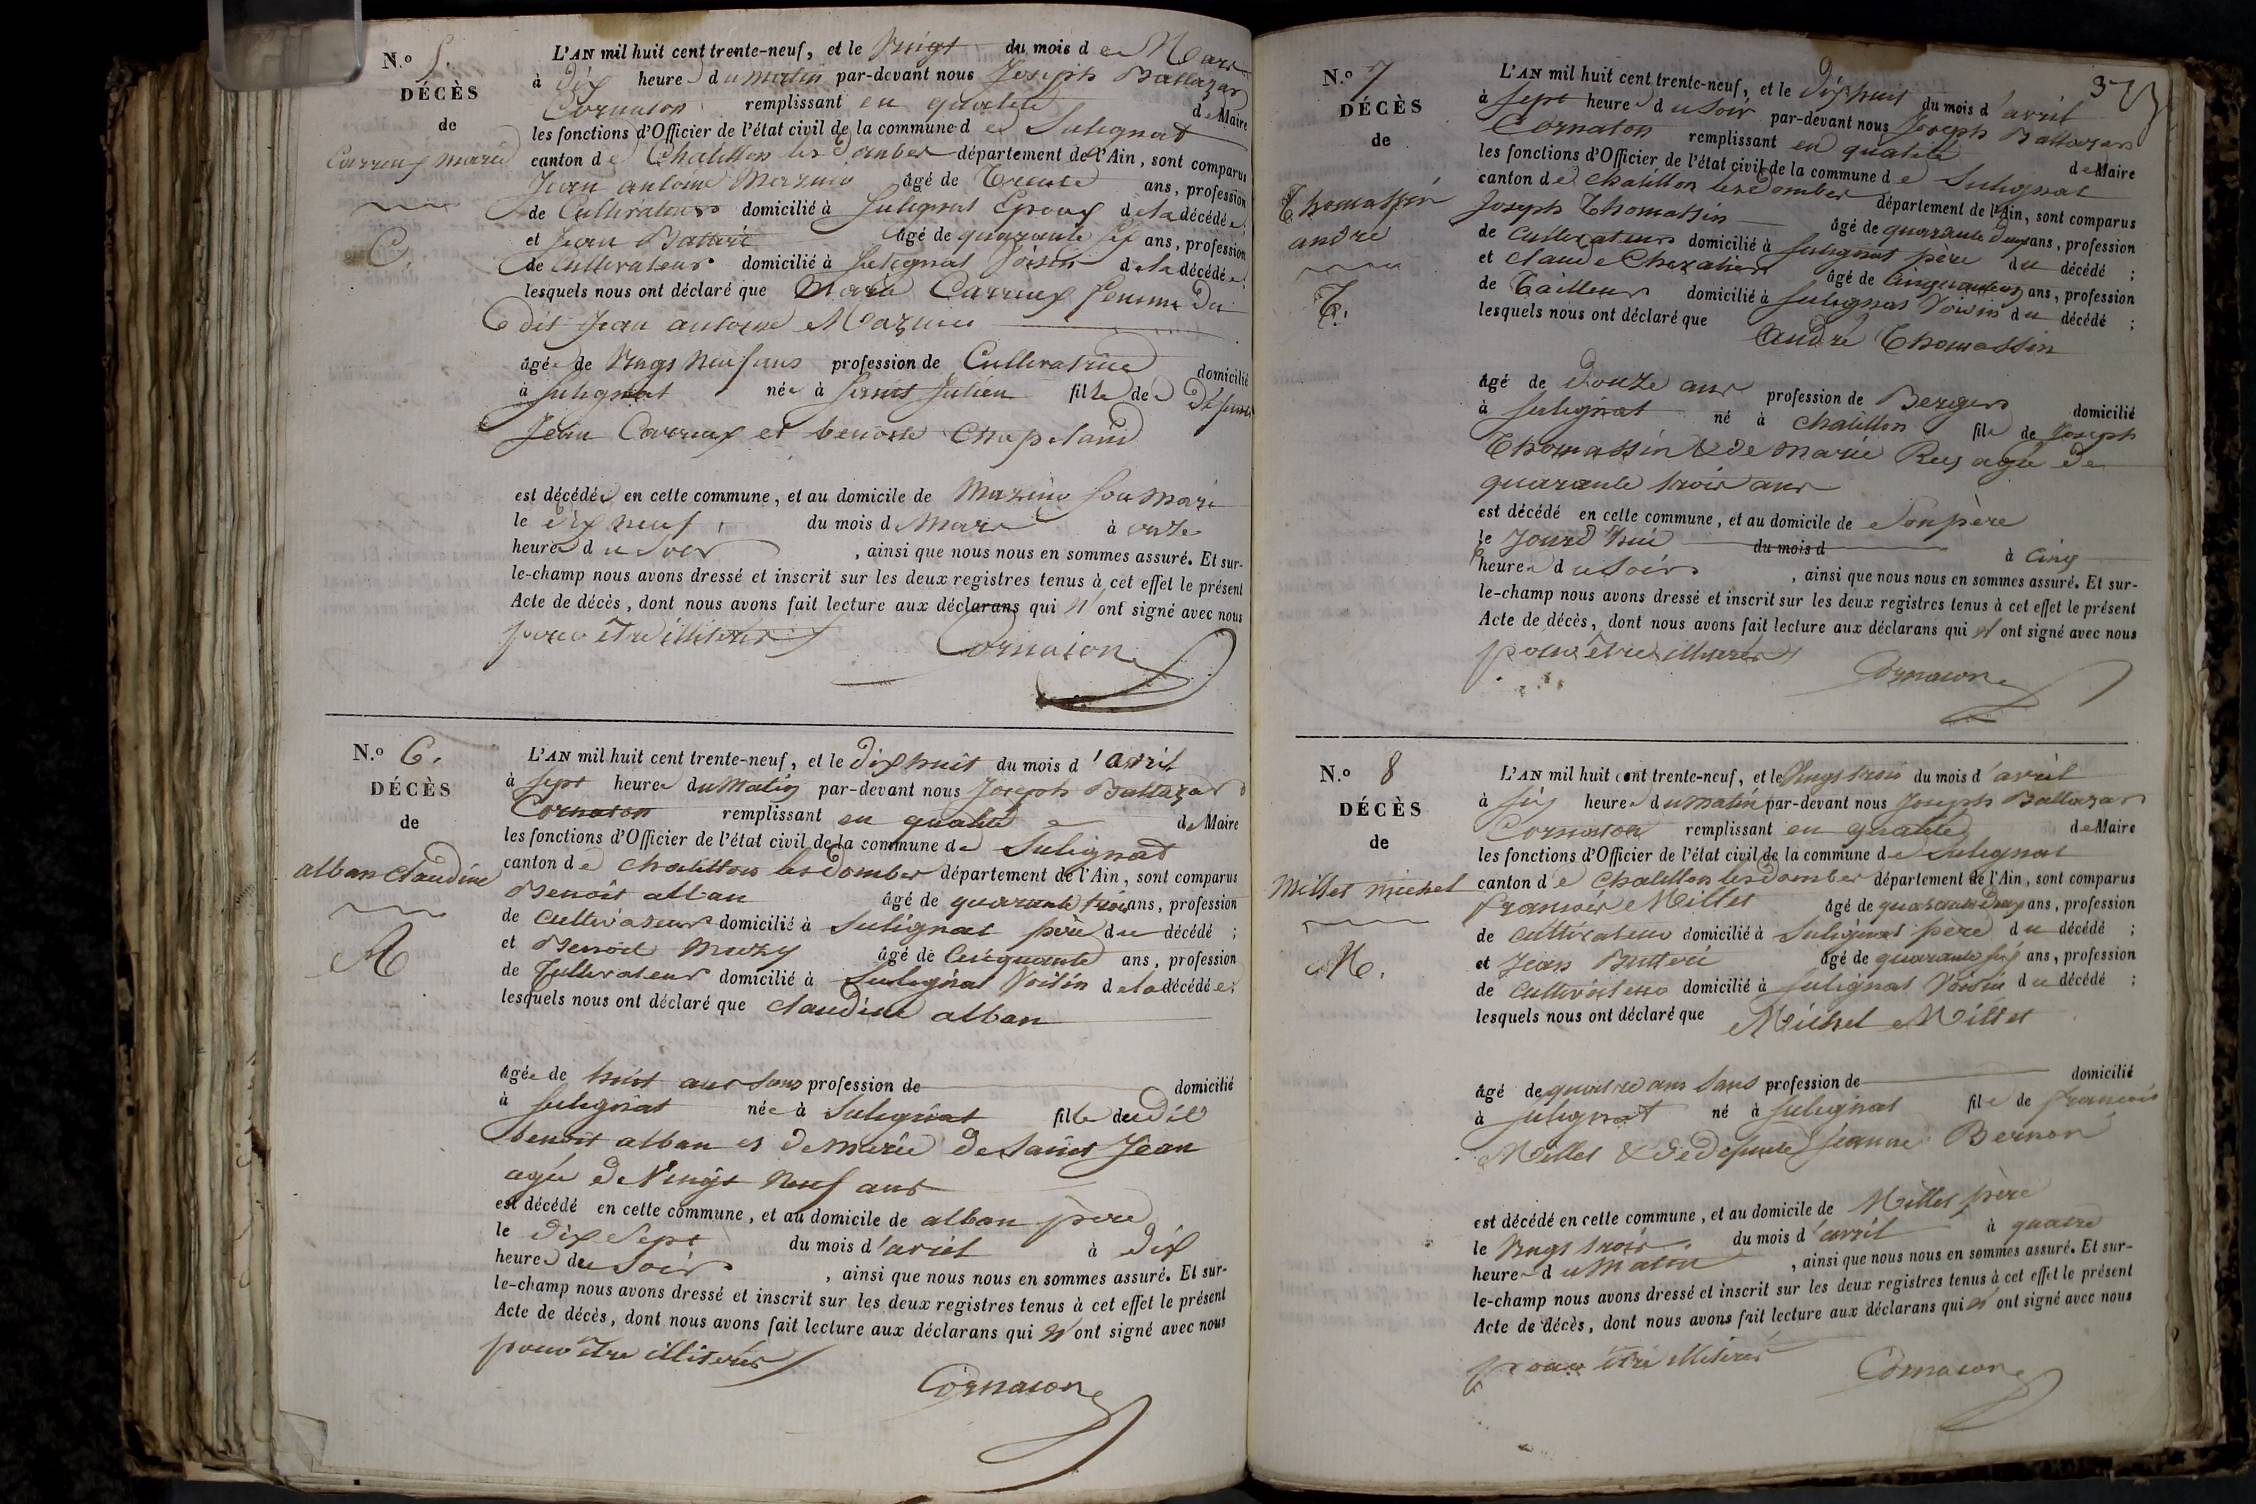 N.º 5.
DÉCÈS
de
Carruex marie
C.
L'AN mil huit cent trente-neuf, et le Vingt du mois de Mars
à dix heure du matin par-devant nous Joseph Baltazar
Cornaton remplissant en qualité de Maire
les fonctions d'Officier de l'état civil de la commune de Sulignat
canton de Chatillon les dombes département de l'Ain, sont comparus
Jean antoine Mazuir âgé de Trente ans, profession
de Cultivateur domicilié à Sulignat Epoux de la décédée;
et Jean Butteri âgé de quarante six ans, profession
de Cultivateur domicilié à Sulignat Voisin de la décédée;
lesquels nous ont déclaré que Marie Carruex femme du
dit Jean antoine Mazuir
âgée de Vingt Neuf ans profession de Cultivatrice domicilié
à Sulignat née à Saint Julien fille de Défunt
Jean Carruex et benoite Chapeland
est décédée en cette commune, et au domicile de Mazuir son Mari
le dix neuf du mois de Mars à onze
heure du Soir, ainsi que nous nous en sommes assuré. Et sur-
le-champ nous avons dressé et inscrit sur les deux registres tenus à cet effet le présent
Acte de décès, dont nous avons fait lecture aux déclarans qui n'ont signé avec nous
pour être illiterés
Cornaton
N.º 6.
DÉCÈS
de
alban Claudine
A
L'AN mil huit cent trente-neuf, et le dix huit du mois d'avril
à Sept heure du Matin par-devant nous Joseph Baltazar
Cornaton remplissant en qualité de Maire
les fonctions d'Officier de l'état civil de la commune de Sulignat
canton de chatillon les Dombes département de l'Ain, sont comparus
Benoit alban âgé de quarante trois ans, profession
de cultivateur domicilié à Sulignat père du décédé;
et Benoit Muzy âgé de Cinquante ans, profession
de Cultivateur domicilié à Sulignat Voisin de la décédée;
lesquels nous ont déclaré que claudine alban
âgée de huit ans sans profession de domicilié
à Sulignat née à Sulignat fille du dit
benoit alban et de Marie de Saint Jean
agée de Vingt Neuf ans
est décédé en cette commune, et au domicile de alban père
le dix Sept du mois d'avril à dix
heure du Soir, ainsi que nous nous en sommes assuré. Et sur-
le-champ nous avons dressé et inscrit sur les deux registres tenus à cet effet le présent
Acte de décès, dont nous avons fait lecture aux déclarans qui n'ont signé avec nous
pour être illiterés
Cornaton
N.º 7
DÉCÈS
de
Thomassin
andré
T.
L'AN mil huit cent trente-neuf, et le dix huit du mois d'avril
à Sept heure du Soir par-devant nous Joseph Baltazar
Cornaton remplissant en qualité de Maire
les fonctions d'Officier de l'état civil de la commune de Sulignat
canton de chatillon les Dombes département de l'Ain, sont comparus
Joseph Thomassin âgé de quarante deux ans, profession
de cultivateur domicilié à Sulignat père du décédé;
et claude Chevalier âgé de Cinquante ans, profession
de Tailleur domicilié à Sulignat Voisin du décédé;
lesquels nous ont déclaré que
André Thomassin
âgé de douze ans profession de Berger domicilié
à Sulignat né à Chatillon fils de Joseph
Thomassin & de Marie Rey agée de
quarante trois ans
est décédé en cette commune, et au domicile de Son père
le Jourd'hui du mois d à cinq
heure du Soir, ainsi que nous nous en sommes assuré. Et sur-
le-champ nous avons dressé et inscrit sur les deux registres tenus à cet effet le présent
Acte de décès, dont nous avons fait lecture aux déclarans qui n'ont signé avec nous
pour être illiterés
Cornaton
N.º 8
DÉCÈS
de
Millet michel
M.
L'AN mil huit cent trente-neuf, et le Vingt trois du mois d'avril
à Six heure du Matin par-devant nous Joseph Baltazar
Cornaton remplissant en qualité de Maire
les fonctions d'Officier de l'état civil de la commune de Sulignat
canton de Chatillon les dombes département de l'Ain, sont comparus
françois Millet âgé de quarante deux ans, profession
de cultivateur domicilié à Sulignat père du décédé;
et Jean Butteri âgé de quarante six ans, profession
de cultivateur domicilié à Sulignat Voisin du décédé;
lesquels nous ont déclaré que Michel Millet
âgé de quatre ans Sans profession de domicilié
à Sulignat né à Sulignat fils de françois
Millet & de défunte Jeanne Bernon
est décédé en cette commune, et au domicile de Millet père
le Vingt trois du mois d'avril à quatre
heure du Matin, ainsi que nous nous en sommes assuré. Et sur-
le-champ nous avons dressé et inscrit sur les deux registres tenus à cet effet le présent
Acte de décès, dont nous avons fait lecture aux déclarans qui n'ont signé avec nous
pour être illiterés
Cornaton